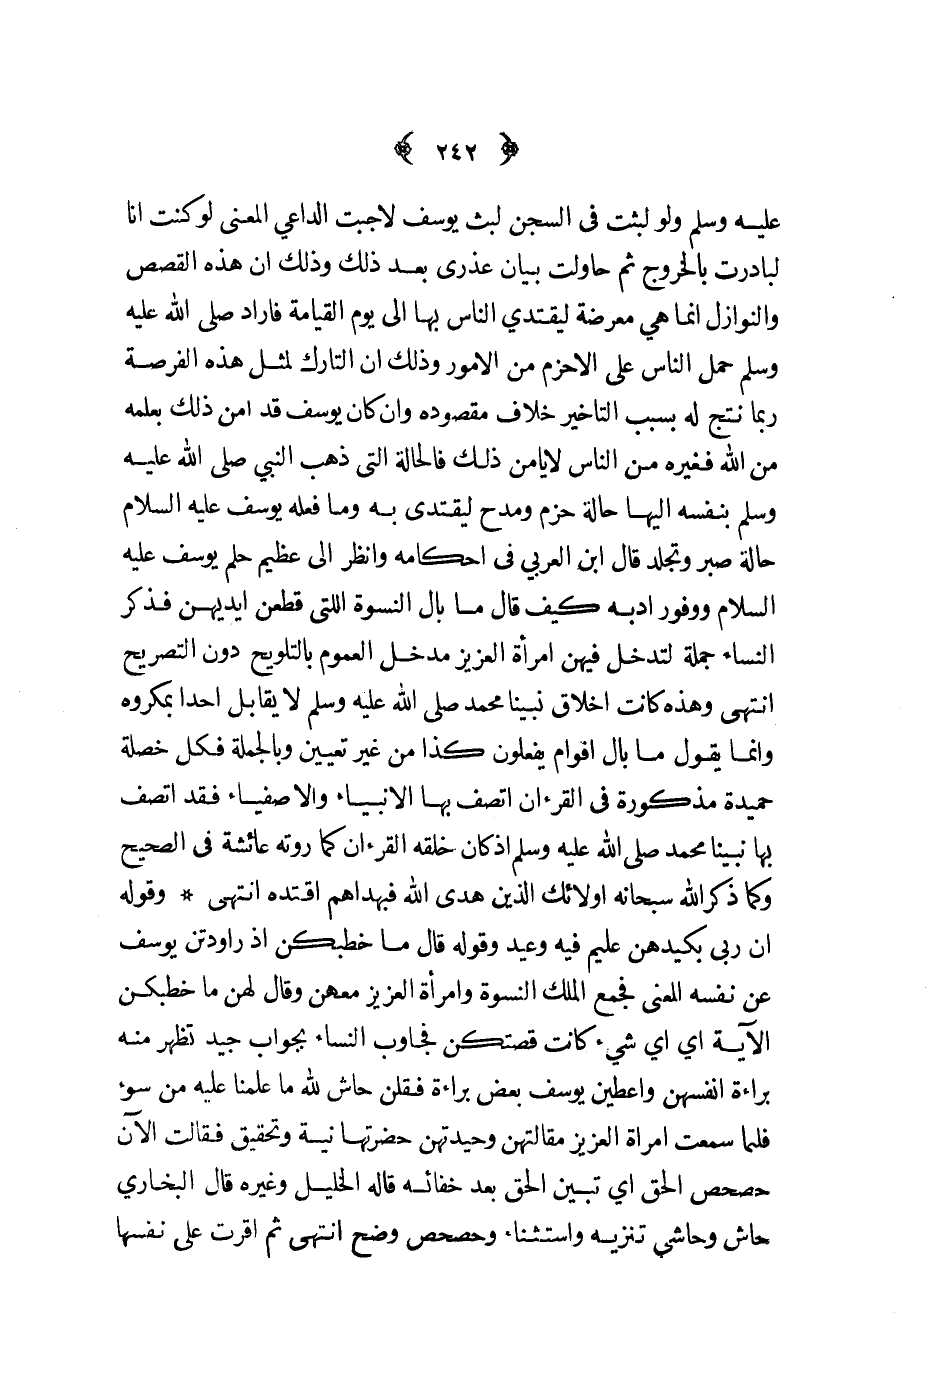 ﴿ ٢٤٢ ﴾
عليه وسلم ولو لبثت فى السجن لبث يوسف لاجبت الداعي المعنى لوكنت انا
لبادرت بالخروج ثم حاولت بيان عذرى بعد ذلك وذلك ان هذه القصص
والنوازل انما هي معرضة ليقتدي الناس بها الى يوم القيامة فاراد صلى الله عليه
وسلم حمل الناس على الاحزم من الامور وذلك ان التارك لمثل هذه الفرصة
ربما نتج له بسبب التاخير خلاف مقصوده وان كان يوسف قد امن ذلك بعلمه
من الله فغيره من الناس لايامن ذلك فالحالة التى ذهب النبي صلى الله عليه
وسلم بنفسه اليها حالة حزم ومدح ليقتدى به وما فعله يوسف عليه السلام
حالة صبر وتجلد قال ابن العربي فى احكامه وانظر الى عظيم حلم يوسف عليه
السلام ووفور ادبه كيف قال ما بال النسوة اللتى قطعن ايديهن فذكر
النساء جملة لتدخل فيهن امرأة العزيز مدخل العموم بالتلويح دون التصريح
انتهى وهذه كانت اخلاق نبينا محمد صلى الله عليه وسلم لا يقابل احدا بمكروه
وانما يقول ما بال اقوام يفعلون كذا من غير تعيين وبالجملة فكل خصلة
حميدة مذكورة فى القرءان اتصف بها الانبياء والاصفياء فقد اتصف
بها نبينا محمد صلى الله عليه وسلم اذ كان خلقه القرءان كما روته عائشة فى الصحيح
وكما ذكر الله سبحانه اولائك الذين هدى الله فبهداهم اقتده انتهى * وقوله
ان ربى بكيدهن عليم فيه وعيد وقوله قال ما خطبكن اذ راودتن يوسف
عن نفسه المعنى فجمع الملك النسوة وامرأة العزيز معهن وقال لهن ما خطبكن
الآية اي اي شيء كانت قصتكن فجاوب النساء بجواب جيد تظهر منه
براءة انفسهن واعطين يوسف بعض براءة فقلن حاش لله ما علمنا عليه من سوء
فلما سمعت امراة العزيز مقالتهن وحيدتهن حضرتها نية وتحقيق فقالت الآن
حصحص الحق اي تبين الحق بعد خفائه قاله الخليل وغيره قال البخاري
حاش وحاشي تنزيه واستثناء وحصحص وضح انتهى ثم اقرت على نفسها